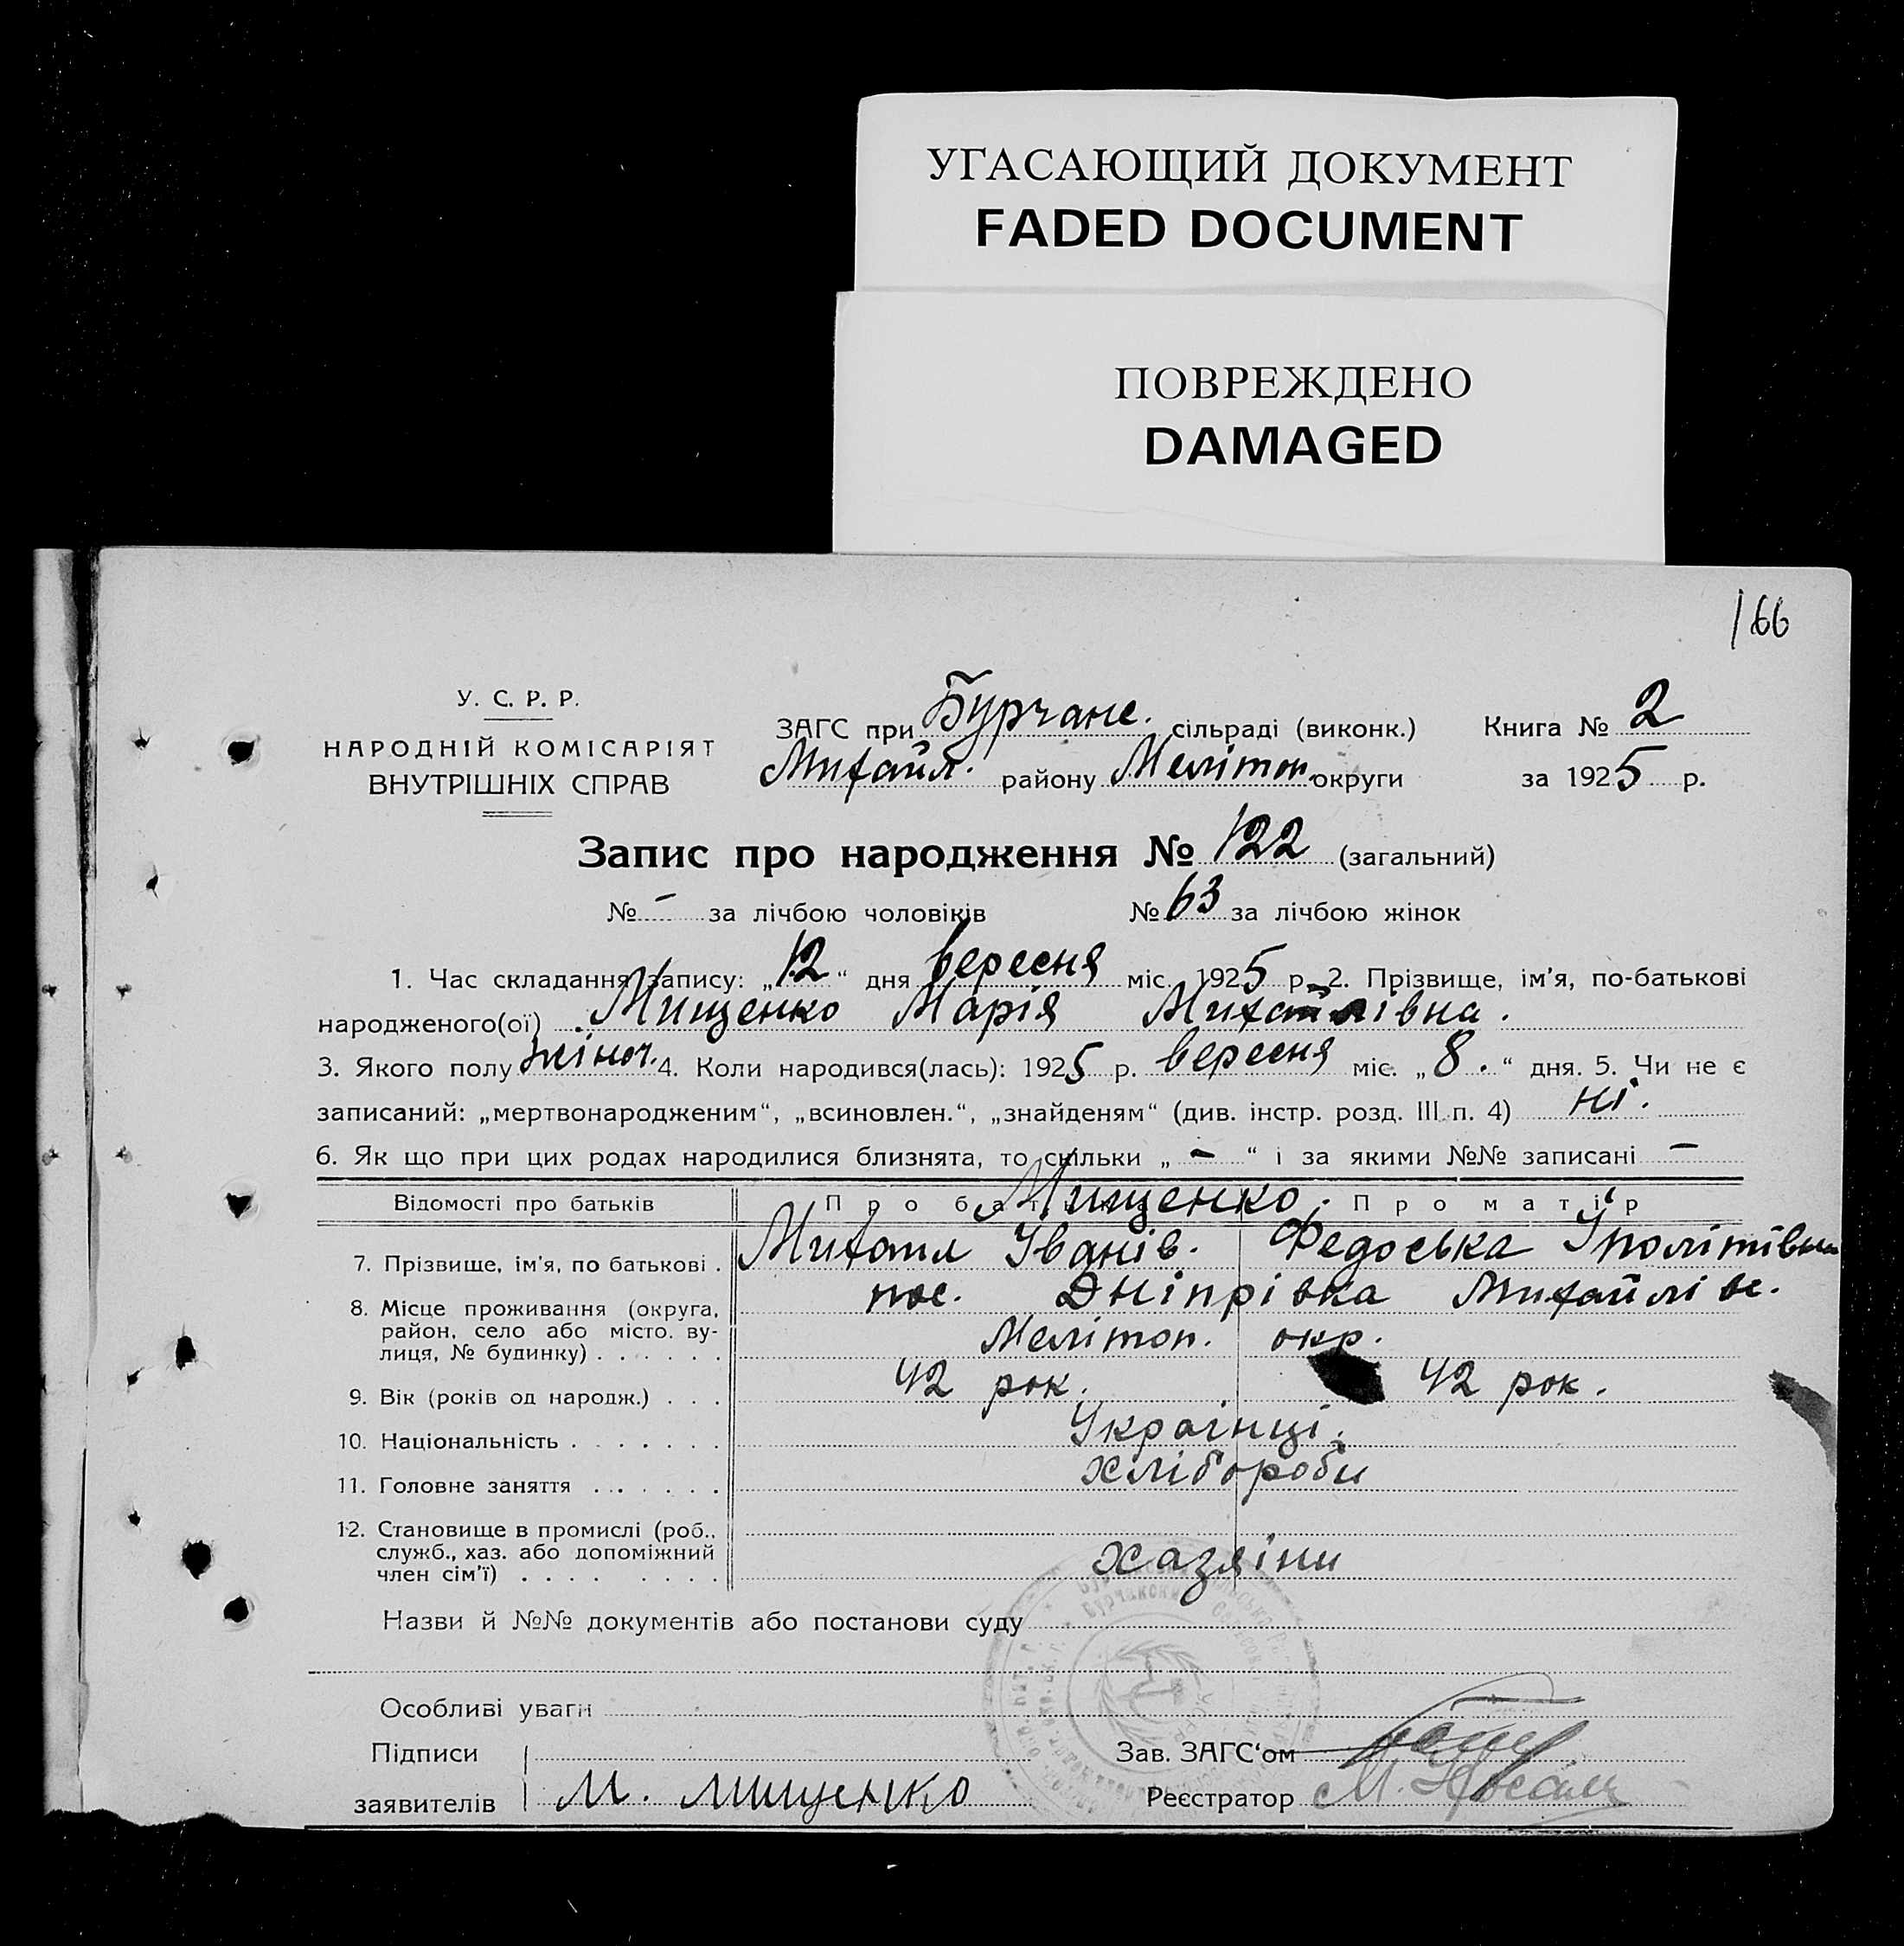 УГАСАЮЩИЙ ДОКУМЕНТ
FADED DOCUMENT
ПОВРЕЖДЕНО
DAMAGED
166
У. С. Р. Р.
НАРОДНІЙ КОМІСАРІЯТ
ВНУТРІШНІХ СПРАВ
ЗАГС при Бурчанс. сільраді (виконк.) Книга № 2
Михайл. району Мелітоп. округи за 1925 р.
Запис про народження № 122 (загальний)
№ - за лічбою чоловіків № 63 за лічбою жінок
1. Час складання запису: „12“ дня вересня міс. 1925 р. 2. Прізвище, ім'я, по-батькові
народженого(ої) Мищенко Марія Михайлівна.
3. Якого полу жіноч. 4. Коли народився(лась): 1925 р. вересня міс. „8.“ дня. 5. Чи не є
записаний: „мертвонародженим“, „всиновлен.“, „знайденям“ (див. інстр. розд. III п. 4) ні.
6. Як що при цих родах народилися близнята, то скільки „-“ і за якими №№ записані -
Відомості про батьків Про батька Мищенко. Про матір
7. Прізвище, ім'я, по батькові . Михайл Іванів. Федоська Іполітівна
8. Місце проживання (округа, район, село або місто. вулиця, № будинку) . . . . . . пос. Дніпрівка Михайлівс.
Мелітоп. окр.
9. Вік (років од народж.) . . . 42 рок. 42 рок.
10. Національність . . . . . . . Українці.
11. Головне заняття . . . . . . хлібороби
12. Становище в промислі (роб., служб., хаз. або допоміжний член сім'ї) . . . . . . . . хазяіни
Назви й №№ документів або постанови суду
Особливі уваги
Підписи Зав. ЗАГС'ом
заявителів М. Мищенко Реєстратор М.